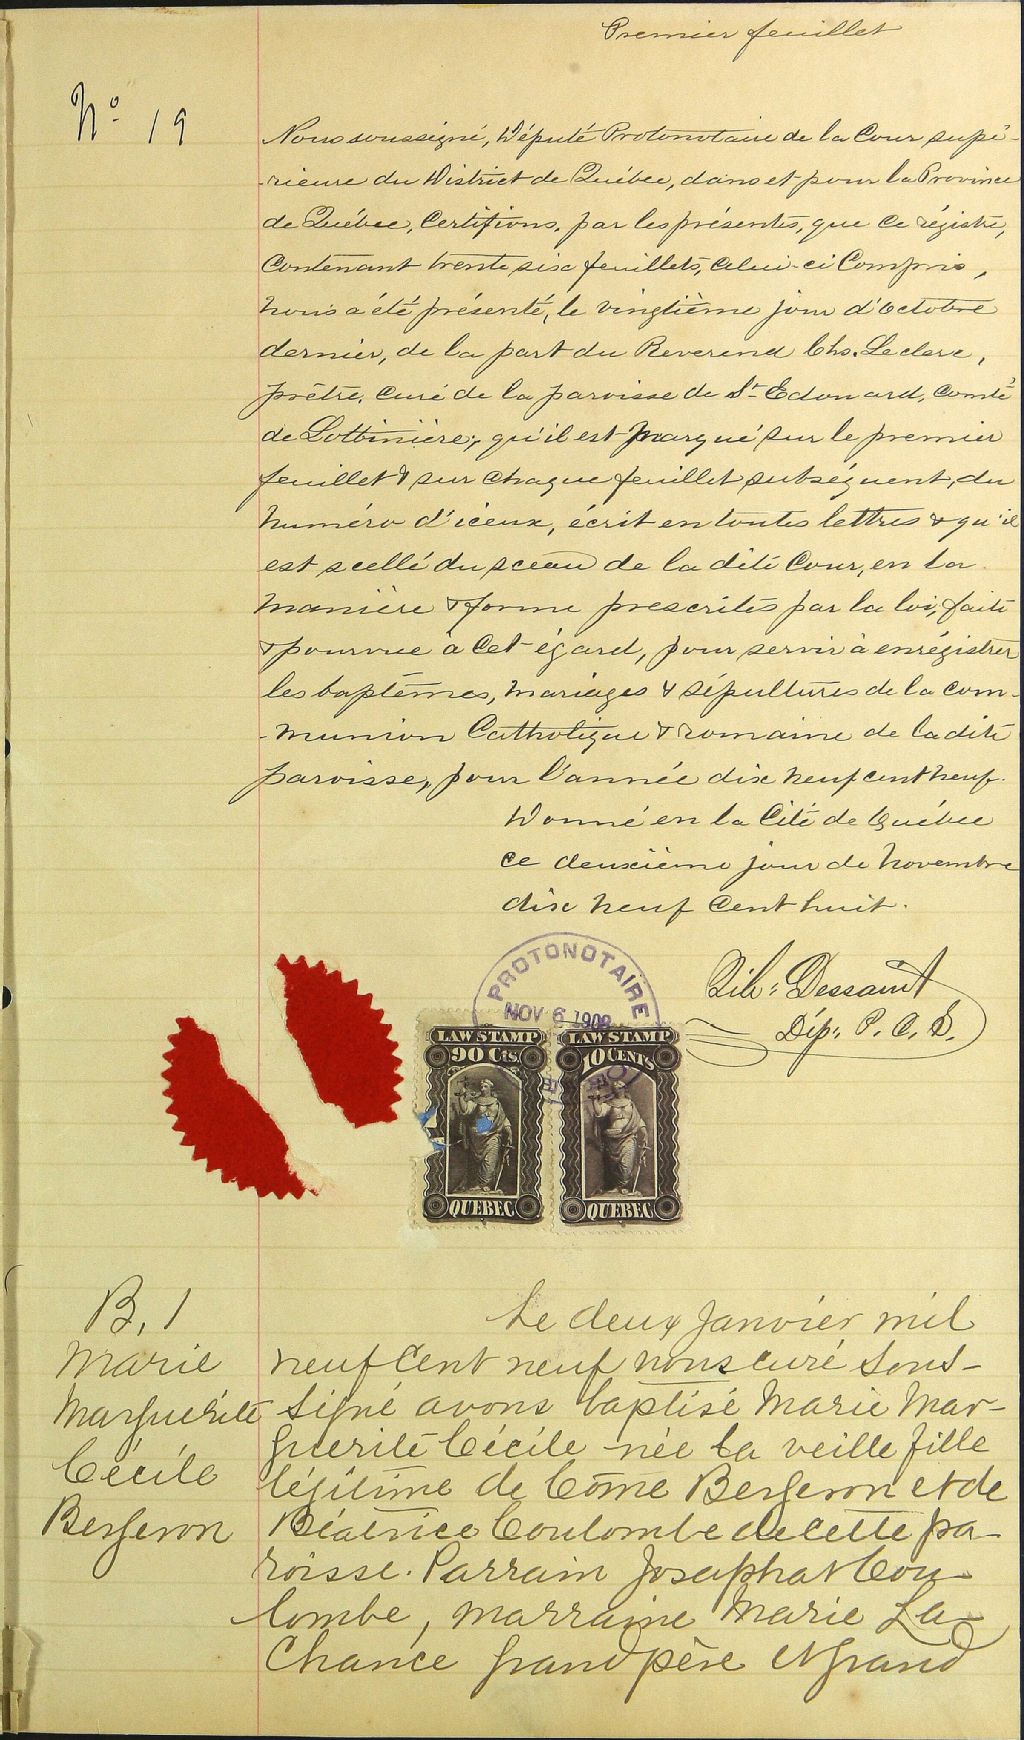 Premier feuillet
No 19
Nous soussigné, Député Protonotaire de la Cour supé-
-rieure du District de Québec, dans et pour la Province
de Québec, Certifions, par les présentes, que ce régistre,
Contenant trente six feuillets, celui-ci Compris,
nous a été présenté, le vingtième jour d'Octobre
dernier, de la part du Reverend Chs. Leclerc,
prêtre, curé de la paroisse de St Edouard, comté
de Lotbinière, qu'il est marqué sur le premier
feuillet & sur chaque feuillet subséquent, du
numéro d'iceux, écrit en toutes lettres & qu'il
est scellé du sceau de la dite Cour, en la
manière & forme prescrites par la loi, faite
& pourvue à cet égard, pour servir à enrégistrer
les baptêmes, mariages & sépultures de la com-
-munion Catholique & romaine de la dite
paroisse, pour l'année dix neuf cent neuf.
Donné en la Cité de Québec
ce deuxième jour de Novembre
dix neuf cent huit.
Dessaint
Dép: P. C. S.
PROTONOTAIRE
NOV 6 1908
LAW STAMP
90 Cts.
QUEBEC
LAW STAMP
10 CENTS
QUEBEC
B, 1
Marie
Marguerite
Cécile
Bergeron
Le deux Janvier mil
neuf Cent neuf nous curé sous-
signé avons baptisé Marie Mar-
guerite Cécile née la veille fille
légitime de Côme Bergeron et de
Béatrice Coulombe de cette pa-
roisse. Parrain Josaphat Cou-
lombe, marraine Marie La-
Chance grand père et grand